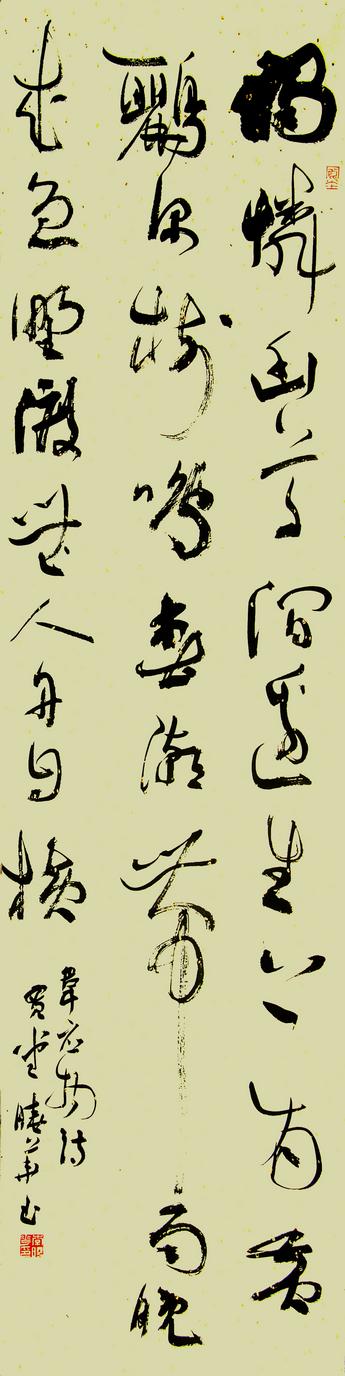 獨憐幽草澗邊生上有黃
鸝深樹鳴春潮帶雨晚
來急野渡無人舟自橫
韋應物詩